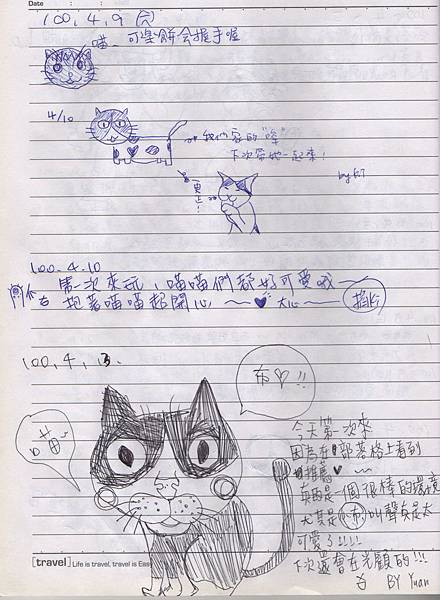 Date
100,4,9 (六)
喵、可麗餅会握手喔
4/10
我們家的"嗶"
下次帶她一起來!
一更上!
100.4.10
第一次來玩,喵喵們都好可愛哦
抱著喵喵超開心 ~♥ 大心
100,4,13.
布♡!!
喵
今天第一次來
因為在部落格上看到
推薦♥~
真的是一個很棒的環境
尤其是小布叫聲真是太
可愛了!!!!
下次還會在光顧的!!!
BY Yuan
[travel] Life is travel, travel is Easy